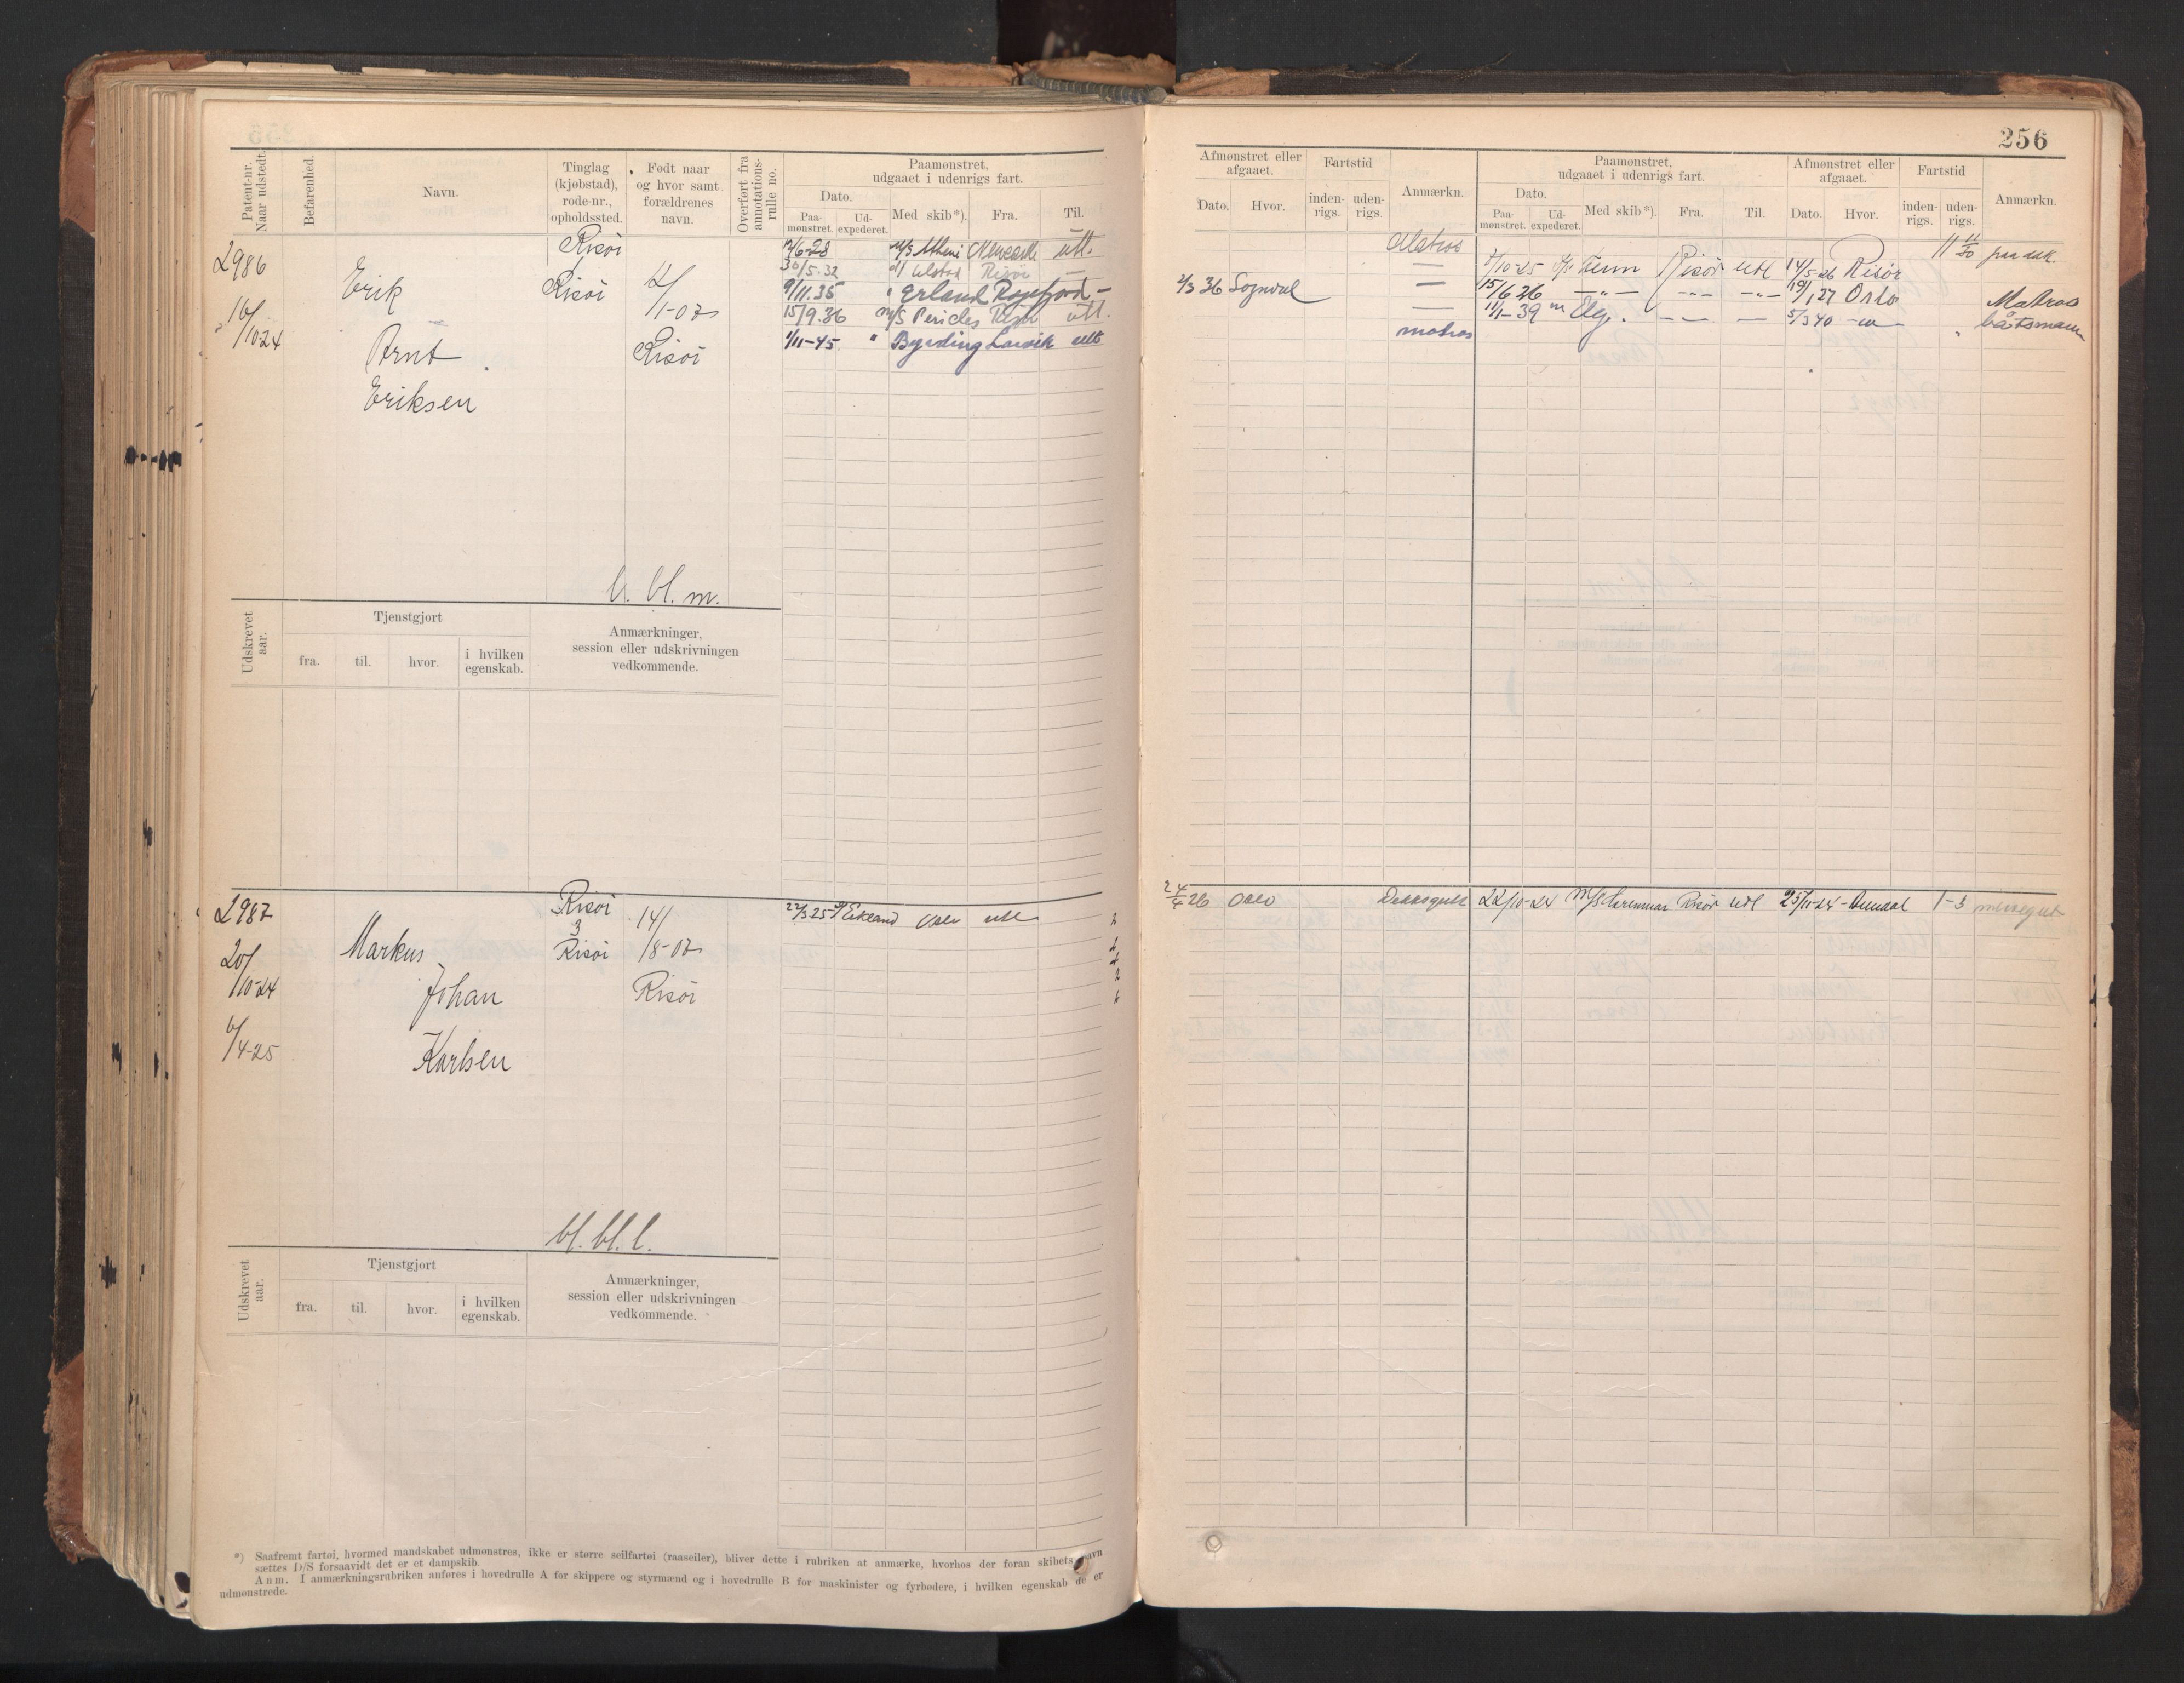 256
Patent-nr. Naar udstedt.
Befarenhed.
Navn.
Tinglag (kjøbstad), rode-nr., opholdssted.
Født naar og hvor samt forældrenes navn.
Overført fra annotations-rulle no.
Paamønstret, udgaaet i udenrigs fart.
Dato.
Paa-mønstret.
Ud-expederet.
Med skib*).
Fra.
Til.
Afmønstret eller afgaaet.
Dato.
Hvor.
Fartstid
inden-rigs.
uden-rigs.
Anmærkn.
Paamønstret, udgaaet i udenrigs fart.
Dato.
Paa-mønstret.
Ud-expederet.
Med skib*).
Fra.
Til.
Afmønstret eller afgaaet.
Dato.
Hvor.
Fartstid
inden-rigs.
uden-rigs.
Anmærkn.
2986
16/10-24
Erik
Arnt
Eriksen
Risöi
Risöi
/1-07
Risöi
30/5-32 Risöi —
9/11.35 " Erland —
15/9.36 M/S Pericles utl.
1/11-45 " Byrding Larvik utl
Matros
—
2/3 36 Sogndal —
—
matros
/10-25 Risör utl 14/5-26 Risör
15/6 26 —"— —"— —"— 19/1 27 Oslo
11/1-39 m Elg. — — 5/3 40
Matros
båtsmann
b. bl. m.
Udskrevet aar.
Tjenstgjort
fra.
til.
hvor.
i hvilken egenskab.
Anmærkninger, session eller udskrivningen vedkommende.
2987
20/10-24
6/4-25
Markus
Johan
Karlsen
Risöi
3
Risöi
14/8-07
Risöi
22/3 25 Eikland Oslo utl
26 Oslo Dæksgutt 22/10-24 M/S Risör utl 25/11-24 1-3 messegut
bl. bl. l.
Udskrevet aar.
Tjenstgjort
fra.
til.
hvor.
i hvilken egenskab.
Anmærkninger, session eller udskrivningen vedkommende.
*) Saafremt fartøi, hvormed mandskabet udmønstres, ikke er større seilfartøi (raaseiler), bliver dette i rubriken at anmærke, hvorhos der foran skibets navn
sættes D/S forsaavidt det er et dampskib.
Anm. I anmærkningsrubriken anføres i hovedrulle A for skippere og styrmænd og i hovedrulle B for maskinister og fyrbødere, i hvilken egenskab de er
udmønstrede.